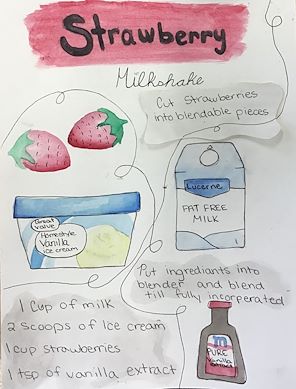 Strawberry
Milkshake
Cut strawberries
into blendable pieces
Great
value
Homestyle
Vanilla
ice cream
Lucerne
FAT FREE
MILK
Put ingredients into
blender and blend
till fully incorperated
1 cup of milk
2 scoops of ice cream
1 cup strawberries
1 tsp of vanilla extract
PURE
Vanilla
extract